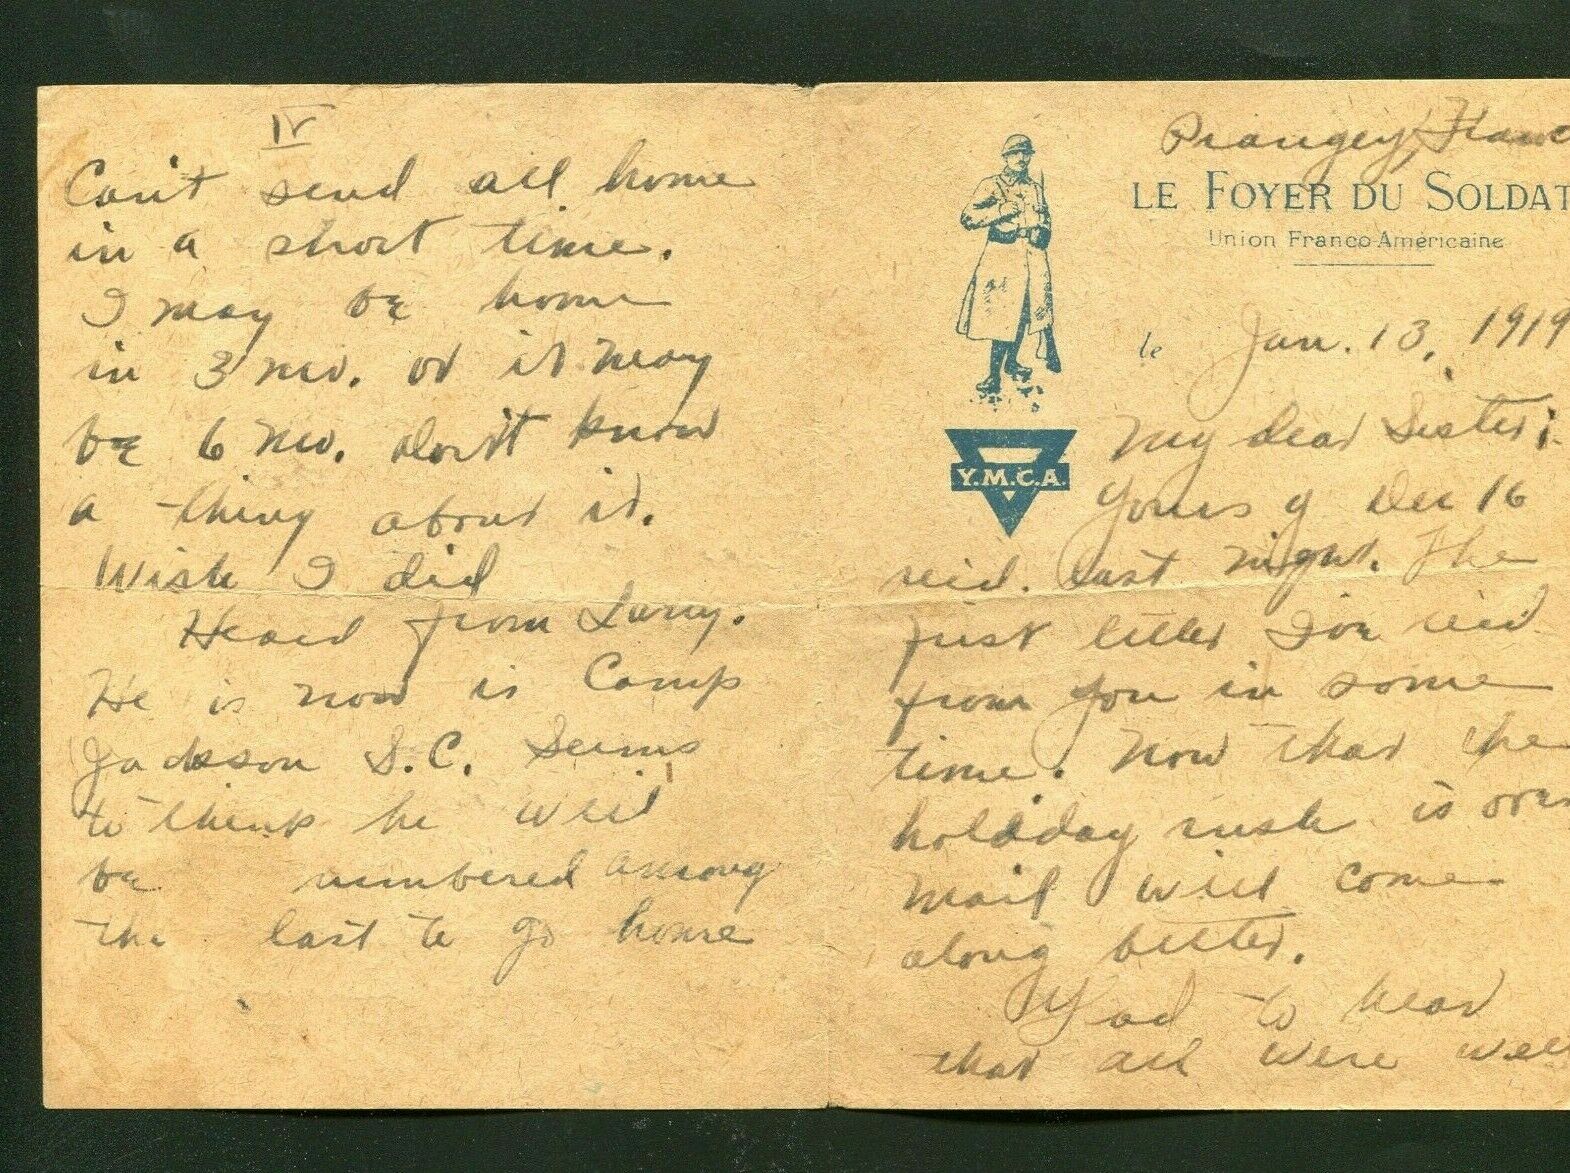 IV
Can't send all home
in a short time.
I may be home
in 3 mo. or it may
be 6 mo. don't know
a thing about it.
Wish I did
Heard from Larry.
He is now is Camp
Jackson S.C. Seems
to think he will
be numbered among
the last to go home
Prangey, Franc
LE FOYER DU SOLDAT
Union Franco-Américaine
le Jan. 13, 1919
Y.M.C.A.
My dear Sister:
Yours of Dec 16
recd. last night. The
first letter I've recd
from you in some
time. Now that the
holiday rush is over
mail will come
along better.
Glad to hear
that all were well